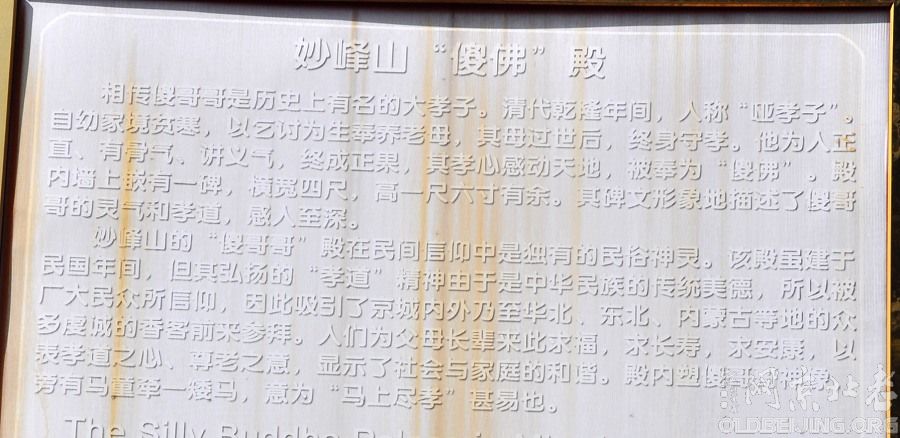 妙峰山“傻佛”殿
相传傻哥哥是历史上有名的大孝子。清代乾隆年间，人称“哑孝子”。
自幼家境贫寒，以乞讨为生奉养老母，其母过世后，终身守孝。他为人正
直、有骨气、讲义气，终成正果，其孝心感动天地，被奉为“傻佛”。殿
内墙上嵌有一碑，横宽四尺，高一尺六寸有余。其碑文形象地描述了傻哥
哥的灵气和孝道，感人至深。
妙峰山的“傻哥哥”殿在民间信仰中是独有的民俗神灵。该殿虽建于
民国年间，但其弘扬的“孝道”精神由于是中华民族的传统美德，所以被
广大民众所信仰，因此吸引了京城内外乃至华北、东北、内蒙古等地的众
多虔诚的香客前来参拜。人们为父母长辈来此求福，求长寿，求安康，以
表孝道之心、尊老之意，显示了社会与家庭的和谐。殿内塑傻哥哥神像，
旁有马童牵一矮马，意为“马上尽孝”甚易也。
The Silly Buddha
老北京网
OLDBEIJING.ORG